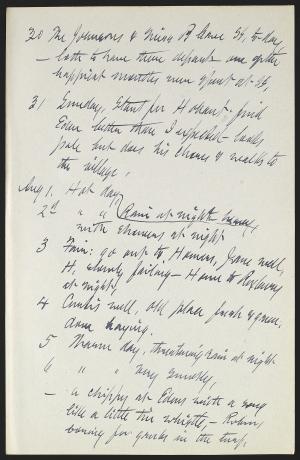 30 The Johnsons & Miss B leave S.S. to-day,
— hate to have them depart — one of the
happiest months ever spent at S.S.
31 Sunday, Start for Hobart — find
Eden better than I expected — looks
pale but does his chores & walks to
the village.
Aug 1. Hot day
2d " " Rain at night
with showers at night
3 Fair: go out to Homers, Jane well,
H. slowly failing — Home to Roxbury
at night,
4 Curtis well, old place fresh & green,
done haying.
5 Warm day, threatening rain at night
6 " " Very smoky,
— a chippy at Edens with a song
like a little tin whistle, — Robins
boring for grubs in the